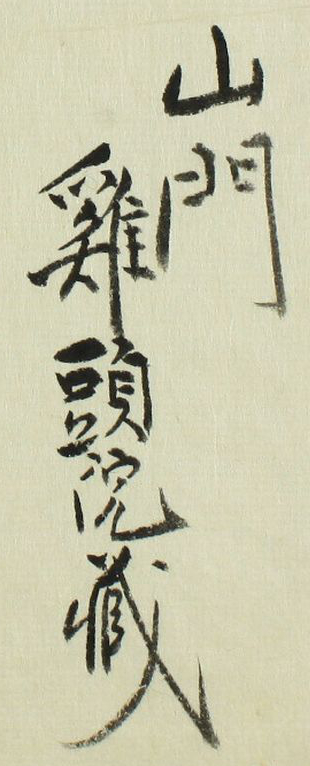 山門
雞頭院藏